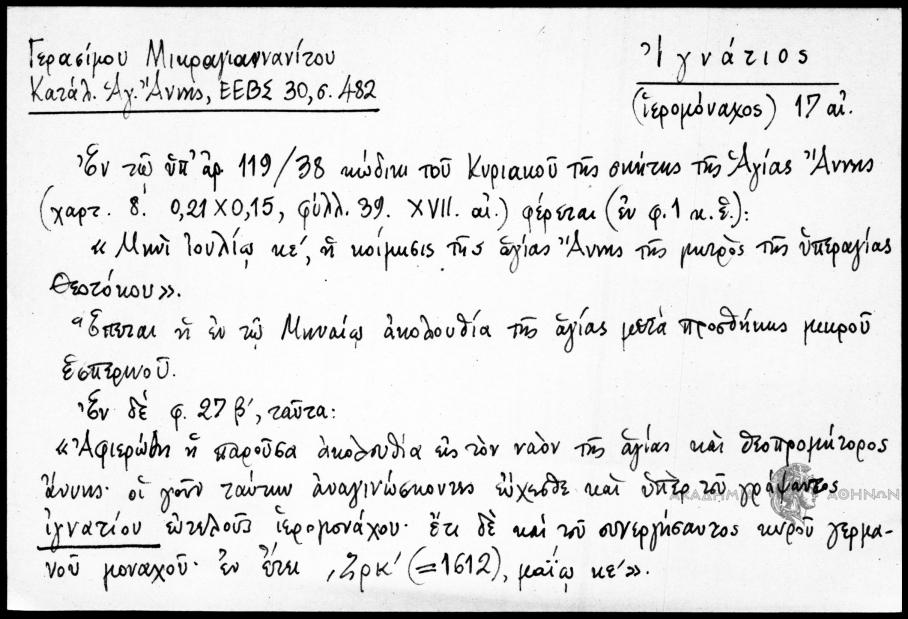 Γερασίμου Μικραγιαννανίτου
Κατάλ. Ἁγ. Ἄννης, ΕΕΒΣ 30, σ. 482
Ἰγνάτιος
(ἱερομόναχος) 17 αἰ.
Ἐν τῷ ὑπ' ἀρ 119/38 κώδικι τοῦ Κυριακοῦ τῆς σκήτης τῆς Ἁγίας Ἄννης
(χαρτ. 8. 0,21 Χ 0,15, φύλλ. 39. XVII. αἰ.) φέρεται (ἐν φ. 1 κ. ἑ.):
« Μηνὶ Ἰουλίῳ κε', ἡ κοίμησις τῆς ἁγίας Ἄννης τῆς μητρὸς τῆς ὑπεραγίας
Θεοτόκου».
Ἕπεται ἡ ἐν τῷ Μηναίῳ ἀκολουθία τῆς ἁγίας μετὰ προσθήκης μικροῦ
ἑσπερινοῦ.
Ἐν δέ φ. 27 β', ταῦτα:
«Ἀφιερώθη ἡ παροῦσα ἀκολουθία εἰς τὸν ναὸν τῆς ἁγίας καὶ θεοπρομήτορος
ἄννης· οἱ γοῦν ταύτην ἀναγινώσκοντες εὔχεσθε καὶ ὑπὲρ τοῦ γράψαντος
ἰγνατίου εὐτελοῦς ἱερομονάχου· ἔτι δὲ καὶ τοῦ συνεργήσαντος κυροῦ γερμα-
νοῦ μοναχοῦ· ἐν ἔτει ͵ζρκ' (=1612), μαΐῳ κε'».
ΑΚΑΔΗΜ ΑΘΗΝΩΝ